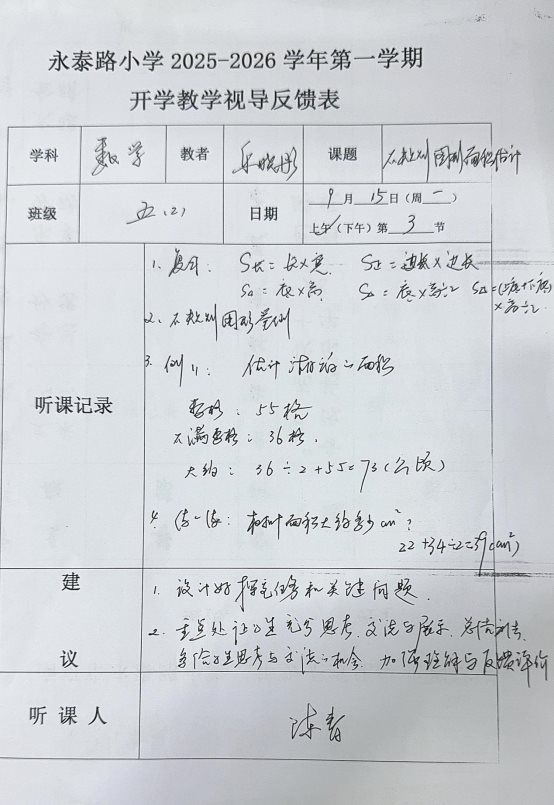 永泰路小学 2025-2026 学年第一学期
开学教学视导反馈表
学科 数学 教者 课题 不规则图形面积估计
班级 五(2) 日期 9 月 15 日（周 一 ）
上午（下午）第 3 节
听课记录
1. 复习: S长=长×宽 S正=边长×边长
S▱=底×高 S△=底×高÷2 S梯=(上底+下底)×高÷2
2. 不规则图形举例
3. 例11: 估计湖泊的面积
整格: 55格
不满整格: 36格.
大约: 36÷2+55=73(公顷)
4. 练一练: 树叶面积大约多少cm²?
22+34÷2=39(cm²)
建议
1. 设计好探究任务和关键问题.
2. 重点处让学生充分思考、交流与展示、总结
多给学生思考与交流的机会. 加强理解与反馈评价
听课人